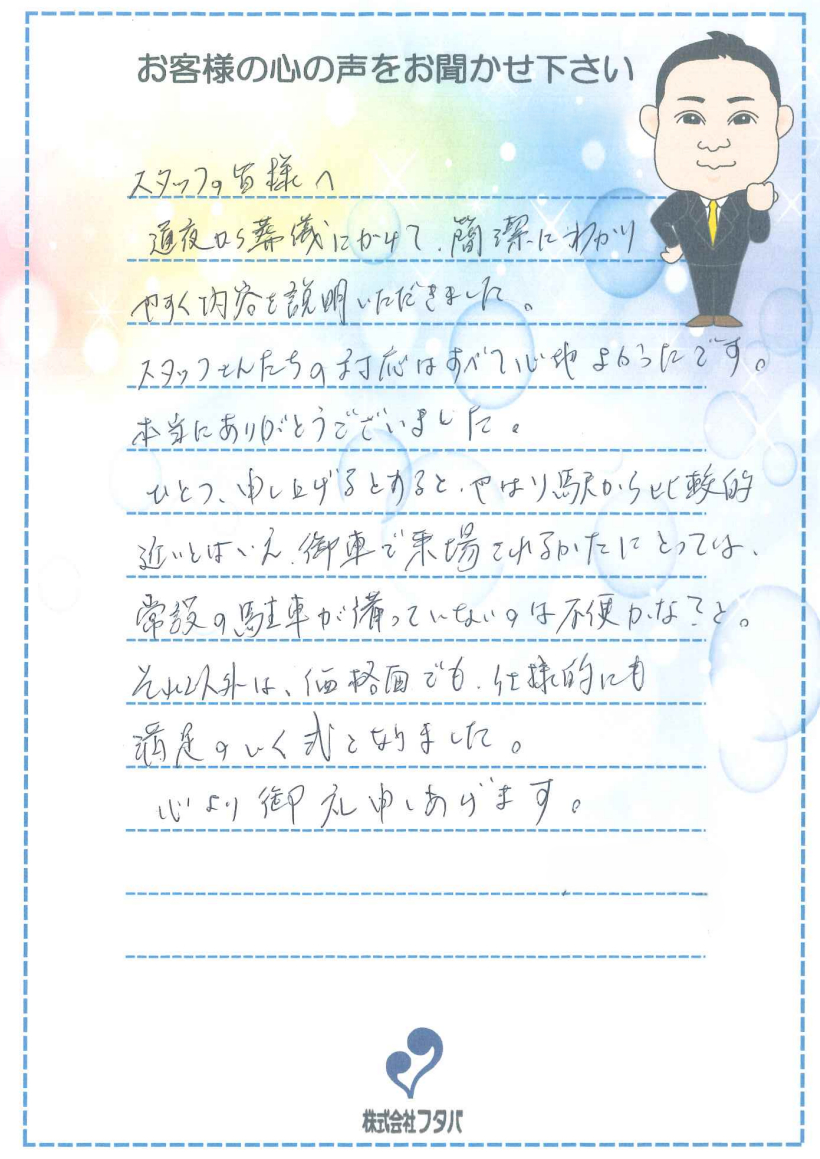 お客様の心の声をお聞かせ下さい
スタッフの皆様へ
通夜から葬儀にかけて、簡潔にわかり
やすく内容を説明いただきました。
スタッフさんたちの対応はすべて心地よかったです。
本当にありがとうございました。
ひとつ、申し上げるとすると、やはり駅から比較的
近いとはいえ、御車で来場されるかたにとっては、
常設の駐車が備っていないのは不便かな?と。
それ以外は、価格面でも、仕様的にも
満足のいく式となりました。
心より御礼申しあげます。
株式会社フタバ